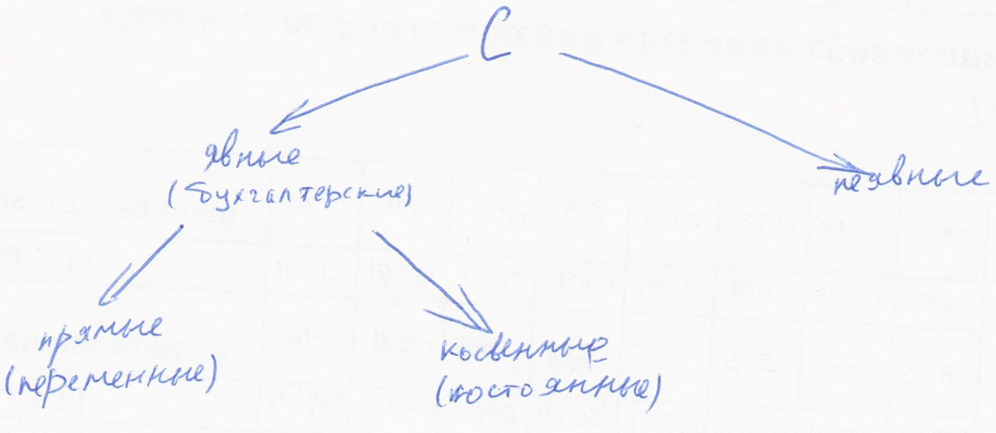 С
явные
(бухгалтерские)
неявные
прямые
(переменные)
косвенные
(постоянные)